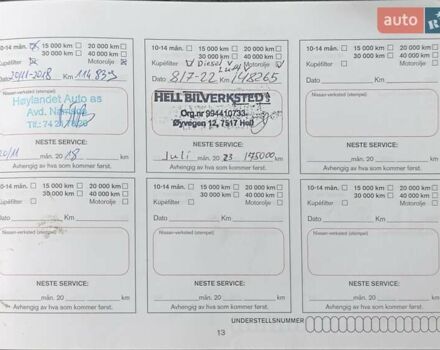 auto
10-14 mån. 15 000 km 20 000 km
30 000 km 40 000 km
Kupéfilter Motorolje
Dato 20/11-2018 Km 114839
Høylandet Auto as
Avd. Namsos
NESTE SERVICE:
20/11 mån. 20 18 km
Avhengig av hva som kommer først.
10-14 mån. 15 000 km 20 000 km
30 000 km 40 000 km
Kupéfilter Diesel Luft Motorolje
Dato 8/7-22 Km 148265
HELL BILVERKSTED
Org.nr 994410733
Øyvegen 12, 7517 Hell
NESTE SERVICE:
Juli mån. 20 23 175000 km
Avhengig av hva som kommer først.
10-14 mån. 15 000 km 20 000 km
30 000 km 40 000 km
Kupéfilter Motorolje
Dato Km
Nissan-verksted (stempel)
NESTE SERVICE:
mån. 20 km
Avhengig av hva som kommer først.
10-14 mån. 15 000 km 20 000 km
30 000 km 40 000 km
Kupéfilter Motorolje
Dato Km
Nissan-verksted (stempel)
NESTE SERVICE:
mån. 20 km
Avhengig av hva som kommer først.
10-14 mån. 15 000 km 20 000 km
30 000 km 40 000 km
Kupéfilter Motorolje
Dato Km
Nissan-verksted (stempel)
NESTE SERVICE:
mån. 20 km
Avhengig av hva som kommer først.
10-14 mån. 15 000 km 20 000 km
30 000 km 40 000 km
Kupéfilter Motorolje
Dato Km
Nissan-verksted (stempel)
NESTE SERVICE:
mån. 20 km
Avhengig av hva som kommer først.
UNDERSTELLSNUMMER
13